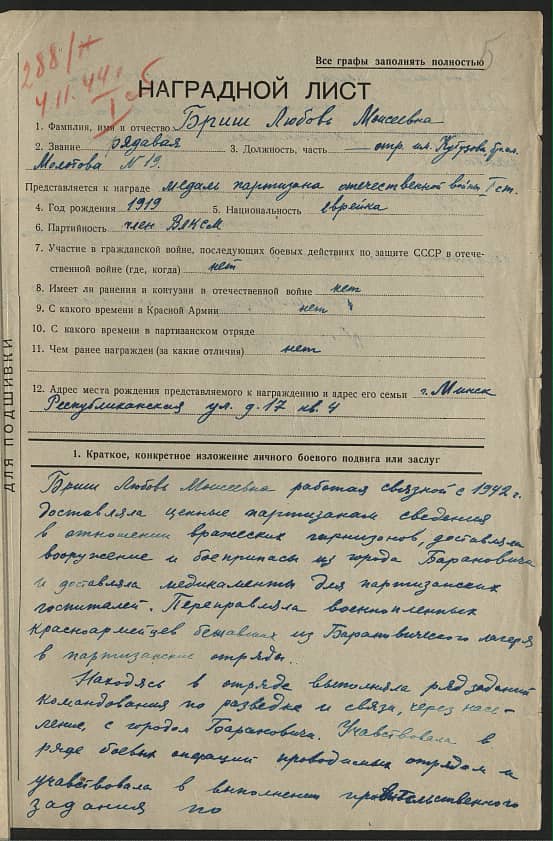 288/н
4.11.44 г.
5
Все графы заполнять полностью
НАГРАДНОЙ ЛИСТ
1. Фамилия, имя и отчество Бриш Любовь Моисеевна
2. Звание рядавая 3. Должность, часть отр. им. Кутузова бриг.
Молотова № 19.
Представляется к награде медаль партизана отечественной войны I ст.
4. Год рождения 1919 5. Национальность еврейка
6. Партийность член ВЛКСМ
7. Участие в гражданской войне, последующих боевых действиях по защите СССР в отече-
ственной войне (где, когда) нет
8. Имеет ли ранения и контузии в отечественной войне нет
9. С какого времени в Красной Армии нет
10. С какого времени в партизанском отряде
11. Чем ранее награжден (за какие отличия) нет
12. Адрес места рождения представляемого к награждению и адрес его семьи г. Минск
Республиканская ул. д. 17 кв. 4
ДЛЯ ПОДШИВКИ
1. Краткое, конкретное изложение личного боевого подвига или заслуг
Бриш Любовь Моисеевна работая связной с 1942 г.
доставляла ценные партизанам сведения
в отношении вражеских гарнизонов, доставляла
вооружение и боеприпасы из города Барановича
и доставляла медикаменты для партизанских
госпиталей. Переправляла военнопленных
красноармейцев бежавших из Барановического лагеря
в партизанские отряды.
Находясь в отряде выполняла ряд заданий
командования по разведке и связи, через насе-
ление, с городом Барановичи. Учавствовала в
ряде боевых операций проводимых отрядом и
учавствовала в выполнении правительственного
задания по